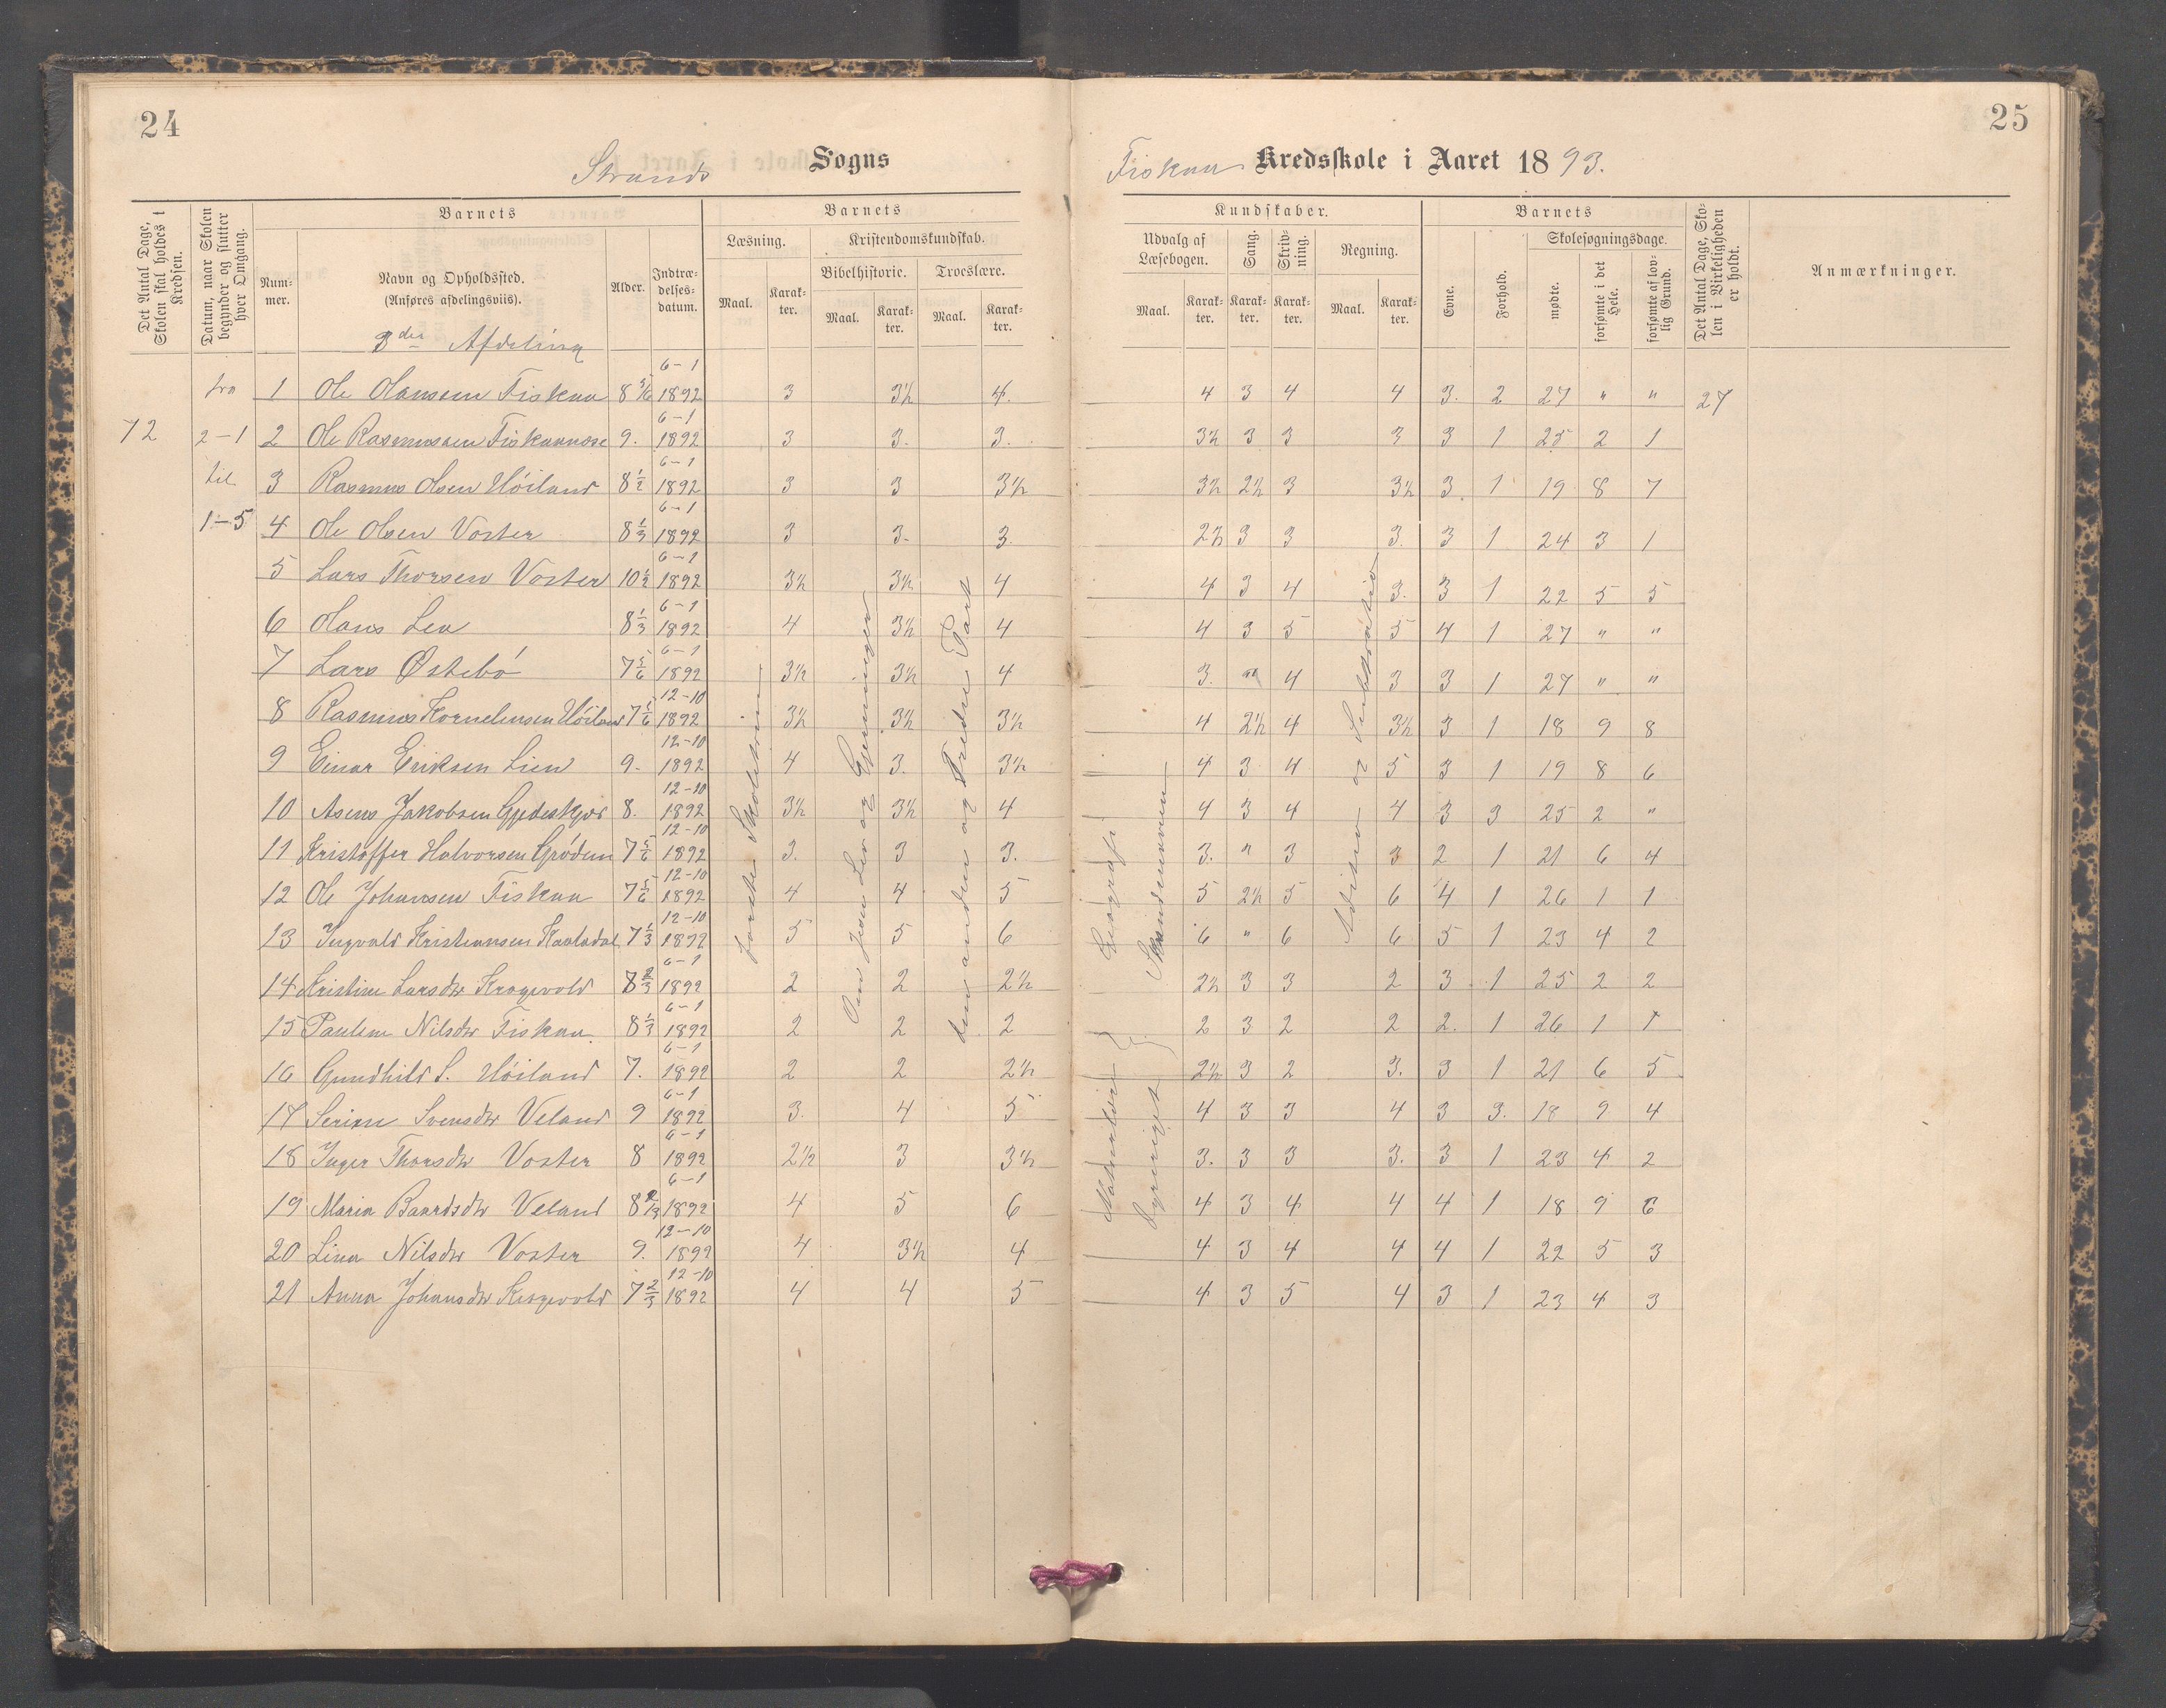 24
Strands Sogns
Det Antal Dage, Skolen skal holdes i Kredsen.
Datum, naar Skolen begynder og slutter hver Omgang.
Barnets
Nummer.
Navn og Opholdssted.
(Anføres afdelingsviis).
Alder.
Indtrædelsesdatum.
Barnets
Læsning.
Kristendomskundskab.
Bibelhistorie.
Troeslære.
Maal.
Karakter.
Maal.
Karakter.
Maal.
Karakter.
3die Afdeling
72
fra 2-1 til 1-5
1 Ole Olaussen Fiskaa 8 5/6 6-1 1892 3 3½ 4.
2 Ole Rasmussen Fiskaanose 9. 6-1 1892 3 3. 3.
3 Rasmus Olsen Höiland 8½ 6-1 1892 3 3 3½
4 Ole Olsen Voster 8⅓ 6-1 1892 3 3. 3.
5 Lars Thorsen Voster 10½ 6-1 1892 3½ 3½ 4
6 Hans Lea 8⅓ 6-1 1892 4 3½ 4
7 Lars Østebó 7 5/6 6-1 1892 3½ 3½ 4
8 Rasmus Korneliussen Höiland 7 5/6 12-10 1892 3½ 3½ 3½
9 Einar Eriksen Lien 9. 12-10 1892 4 3. 3½
10 Asens Jakobsen Gjedeskjor 8. 12-10 1892 3½ 3½ 4
11 Kristoffer Halvorsen Gródem 7 5/6 12-10 1892 3. 3 3.
12 Ole Johansen Fiskaa 7 5/6 12-10 1892 4 4 5
13 Ingvald Kristiansen Kaaladal 7⅓ 12-10 1892 5 5 6
14 Kristine Larsdtr Krogevold 8⅔ 6-1 1892 2 2 2½
15 Pauline Nilsdtr Fiskaa. 8⅓ 6-1 1892 2 2 2
16 Gundhild S. Höiland 7. 6-1 1892 2 2 2½
17 Serine Svensdtr Veland 9 6-1 1892 3. 4 5
18 Inger Thorsdtr Voster 8 6-1 1892 2½ 3 3½
19 Maria Baardsdtr Veland 8⅔ 6-1 1892 4 5 6
20 Lina Nilsdtr Voster 9. 12-10 1892 4 3½ 4
21 Anna Johansdtr Krogevold 7⅔ 12-10 1892 4 4 5
Om Jesu Liv og Gjerninger
den anden og tredie Part
25
Fiskaa Kredsskole i Aaret 1893.
Kundskaber.
Udvalg af Læsebogen.
Sang.
Skrivning.
Regning.
Maal.
Karakter.
Karakter.
Karakter.
Maal.
Karakter.
Barnets
Evne.
Forhold.
Skolesøgningsdage.
mødte.
forsømte i det Hele.
forsømte af lovlig Grund.
Det Antal Dage, Skolen i Virkeligheden er holdt.
Anmærkninger.
4 3 4 4 3. 2 27 " " 27
3½ 3 3 3 3 1 25 2 1
3½ 2½ 3 3½ 3. 1 19 8 7
2½ 3 3 3. 3 1 24 3 1
4 3 4 3. 3 1 22 5 5
4 3 5 5 4 1 27 " "
3. " 4 3 3 1 27 " "
4 2½ 4 3½ 3 1 18 9 8
4 3 4 5 3 1 19 8 6
4 3 4 4 3 3 25 2 "
3. " 3 3 2 1 21 6 4
5 2½ 5 6 4 1 26 1 1
6 " 6 6 5 1 23 4 2
2½ 3 3 2 3 1 25 2 2
2 3 2 2 2. 1 26 1 1
2½ 3 2 3. 3 1 21 6 5
4 3 3 4 3 3. 18 9 4
3. 3 3 3. 3 1 23 4 2
4 3 4 4 4 1 18 9 6
4 3 4 4 4 1 22 5 3
4 3 5 4 3 1 23 4 3
Geografi
Naturlære
Dyreriget
Adition og Subtraktio